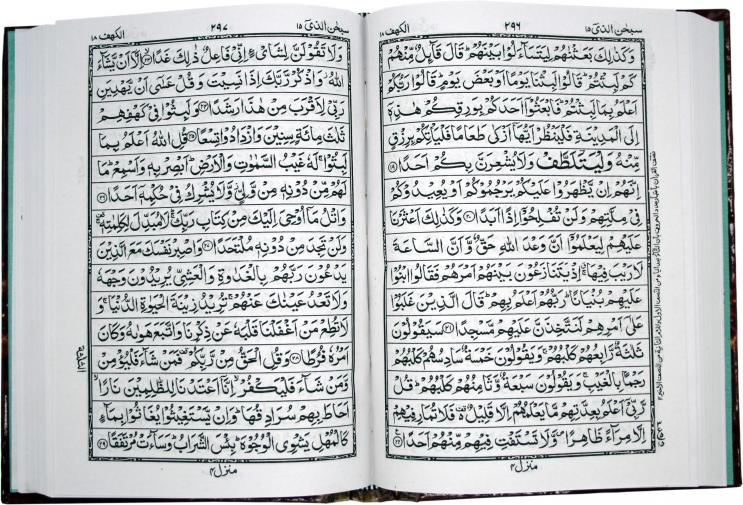 سبحٰن الذیۤ ١٥ ٢٩٦ الكهف ١٨
وَكَذٰلِكَ بَعَثْنٰهُمْ لِیَتَسَآءَلُوْا بَیْنَهُمْ ؕ قَالَ قَآئِلٌ مِّنْهُمْ
كَمْ لَبِثْتُمْ ؕ قَالُوْا لَبِثْنَا یَوْمًا اَوْ بَعْضَ یَوْمٍ ؕ قَالُوْا رَبُّكُمْ
اَعْلَمُ بِمَا لَبِثْتُمْ ؕ فَابْعَثُوْۤا اَحَدَكُمْ بِوَرِقِكُمْ هٰذِهٖۤ
اِلَی الْمَدِیْنَةِ فَلْیَنْظُرْ اَیُّهَاۤ اَزْكٰی طَعَامًا فَلْیَاْتِكُمْ بِرِزْقٍ
مِّنْهُ وَلْیَتَلَطَّفْ وَلَا یُشْعِرَنَّ بِكُمْ اَحَدًا ﴿١٩﴾
اِنَّهُمْ اِنْ یَّظْهَرُوْا عَلَیْكُمْ یَرْجُمُوْكُمْ اَوْ یُعِیْدُوْكُمْ
فِیْ مِلَّتِهِمْ وَلَنْ تُفْلِحُوْۤا اِذًا اَبَدًا ﴿٢٠﴾ وَكَذٰلِكَ اَعْثَرْنَا
عَلَیْهِمْ لِیَعْلَمُوْۤا اَنَّ وَعْدَ اللّٰهِ حَقٌّ وَّ اَنَّ السَّاعَةَ
لَا رَیْبَ فِیْهَا ۚ اِذْ یَتَنَازَعُوْنَ بَیْنَهُمْ اَمْرَهُمْ فَقَالُوا ابْنُوْا
عَلَیْهِمْ بُنْیَانًا ؕ رَبُّهُمْ اَعْلَمُ بِهِمْ ؕ قَالَ الَّذِیْنَ غَلَبُوْا
عَلٰۤی اَمْرِهِمْ لَنَتَّخِذَنَّ عَلَیْهِمْ مَّسْجِدًا ﴿٢١﴾ سَیَقُوْلُوْنَ
ثَلٰثَةٌ رَّابِعُهُمْ كَلْبُهُمْ ۚ وَیَقُوْلُوْنَ خَمْسَةٌ سَادِسُهُمْ كَلْبُهُمْ
رَجْمًۢا بِالْغَیْبِ ۚ وَیَقُوْلُوْنَ سَبْعَةٌ وَّثَامِنُهُمْ كَلْبُهُمْ ؕ قُلْ
رَّبِّیْۤ اَعْلَمُ بِعِدَّتِهِمْ مَّا یَعْلَمُهُمْ اِلَّا قَلِیْلٌ ۬ فَلَا تُمَارِ فِیْهِمْ
اِلَّا مِرَآءً ظَاهِرًا ۪ وَّلَا تَسْتَفْتِ فِیْهِمْ مِّنْهُمْ اَحَدًا ﴿٢٢﴾
منزل ٤
سبحٰن الذیۤ ١٥ ٢٩٧ الكهف ١٨
وَلَا تَقُوْلَنَّ لِشَایْءٍ اِنِّیْ فَاعِلٌ ذٰلِكَ غَدًا ﴿٢٣﴾ اِلَّاۤ اَنْ یَّشَآءَ
اللّٰهُ ؗ وَاذْكُرْ رَّبَّكَ اِذَا نَسِیْتَ وَقُلْ عَسٰۤی اَنْ یَّهْدِیَنِ
رَبِّیْ لِاَقْرَبَ مِنْ هٰذَا رَشَدًا ﴿٢٤﴾ وَلَبِثُوْا فِیْ كَهْفِهِمْ
ثَلٰثَ مِائَةٍ سِنِیْنَ وَازْدَادُوْا تِسْعًا ﴿٢٥﴾ قُلِ اللّٰهُ اَعْلَمُ بِمَا
لَبِثُوْا ۚ لَهٗ غَیْبُ السَّمٰوٰتِ وَالْاَرْضِ ؕ اَبْصِرْ بِهٖ وَاَسْمِعْ ؕ مَا
لَهُمْ مِّنْ دُوْنِهٖ مِنْ وَّلِیٍّ ؗ وَّلَا یُشْرِكُ فِیْ حُكْمِهٖۤ اَحَدًا ﴿٢٦﴾
وَاتْلُ مَاۤ اُوْحِیَ اِلَیْكَ مِنْ كِتَابِ رَبِّكَ ؕ لَا مُبَدِّلَ لِكَلِمٰتِهٖ ۫
وَلَنْ تَجِدَ مِنْ دُوْنِهٖ مُلْتَحَدًا ﴿٢٧﴾ وَاصْبِرْ نَفْسَكَ مَعَ الَّذِیْنَ
یَدْعُوْنَ رَبَّهُمْ بِالْغَدٰوةِ وَالْعَشِیِّ یُرِیْدُوْنَ وَجْهَهٗ
وَلَا تَعْدُ عَیْنٰكَ عَنْهُمْ ۚ تُرِیْدُ زِیْنَةَ الْحَیٰوةِ الدُّنْیَا ۚ وَ
لَا تُطِعْ مَنْ اَغْفَلْنَا قَلْبَهٗ عَنْ ذِكْرِنَا وَاتَّبَعَ هَوٰىهُ وَكَانَ
اَمْرُهٗ فُرُطًا ﴿٢٨﴾ وَقُلِ الْحَقُّ مِنْ رَّبِّكُمْ ۫ فَمَنْ شَآءَ فَلْیُؤْمِنْ
وَّمَنْ شَآءَ فَلْیَكْفُرْ ۙ اِنَّاۤ اَعْتَدْنَا لِلظّٰلِمِیْنَ نَارًا ۙ
اَحَاطَ بِهِمْ سُرَادِقُهَا ؕ وَاِنْ یَّسْتَغِیْثُوْا یُغَاثُوْا بِمَآءٍ
كَالْمُهْلِ یَشْوِی الْوُجُوْهَ ؕ بِئْسَ الشَّرَابُ ؕ وَسَآءَتْ مُرْتَفَقًا ﴿٢٩﴾
منزل ٤